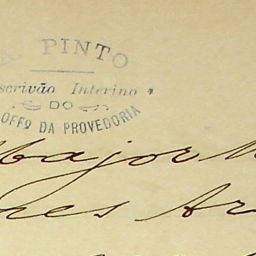 A. PINTO
Escrivão Interino
DO
OFFº DA PROVEDORIA
Major M
nes Ar